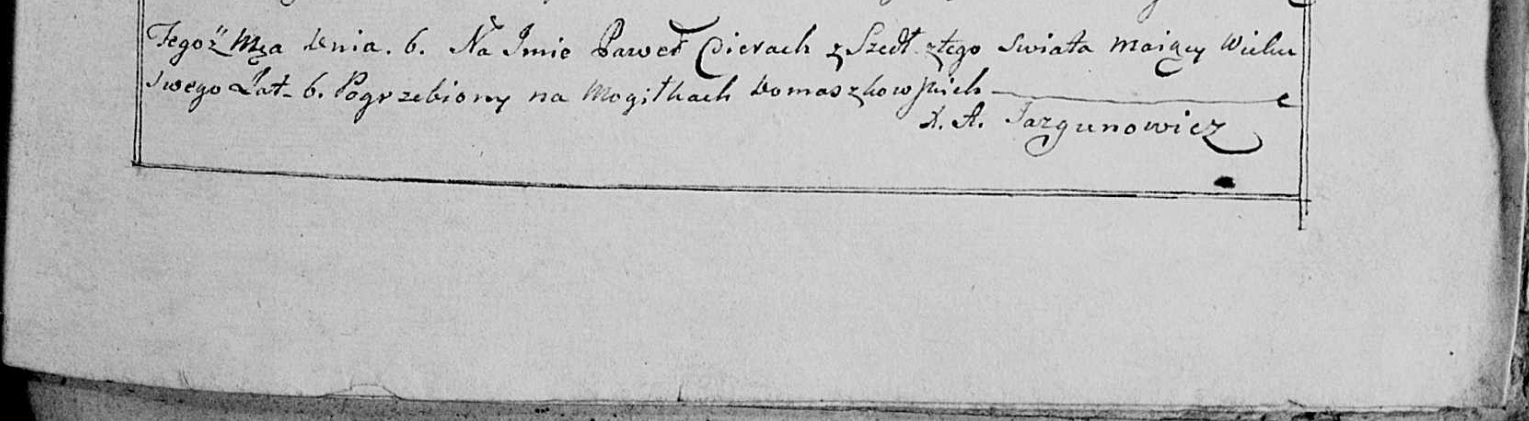 Tegoż Mca Dnia. 6. Na Imie Paweł Cierach zSzedł ztego Swiata maiący Wieku
Swego Lat. 6. Pogrzebiony na Mogiłkach Domaszkowskich
X. A. Jazgunowicz